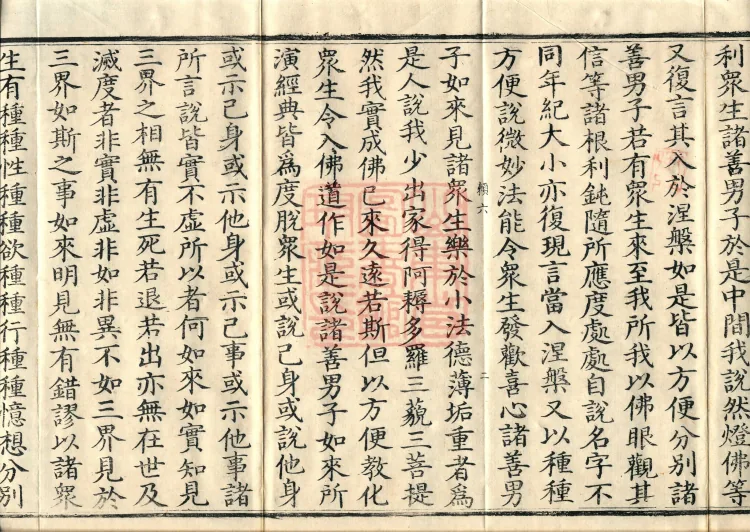 利衆生諸善男子於是中間我說然燈佛等
又復言其入於涅槃如是皆以方便分別諸
善男子若有衆生來至我所我以佛眼觀其
信等諸根利鈍隨所應度處處自說名字不
同年紀大小亦復現言當入涅槃又以種種
方便說微妙法能令衆生發歡喜心諸善男
子如來見諸衆生樂於小法德薄垢重者爲
是人說我少出家得阿耨多羅三藐三菩提
然我實成佛已來久遠若斯但以方便教化
衆生令入佛道作如是說諸善男子如來所
演經典皆爲度脫衆生或說己身或說他身
或示己身或示他身或示己事或示他事諸
所言說皆實不虛所以者何如來如實知見
三界之相無有生死若退若出亦無在世及
滅度者非實非虛非如非異不如三界見於
三界如斯之事如來明見無有錯謬以諸衆
生有種種性種種欲種種行種種憶想分別